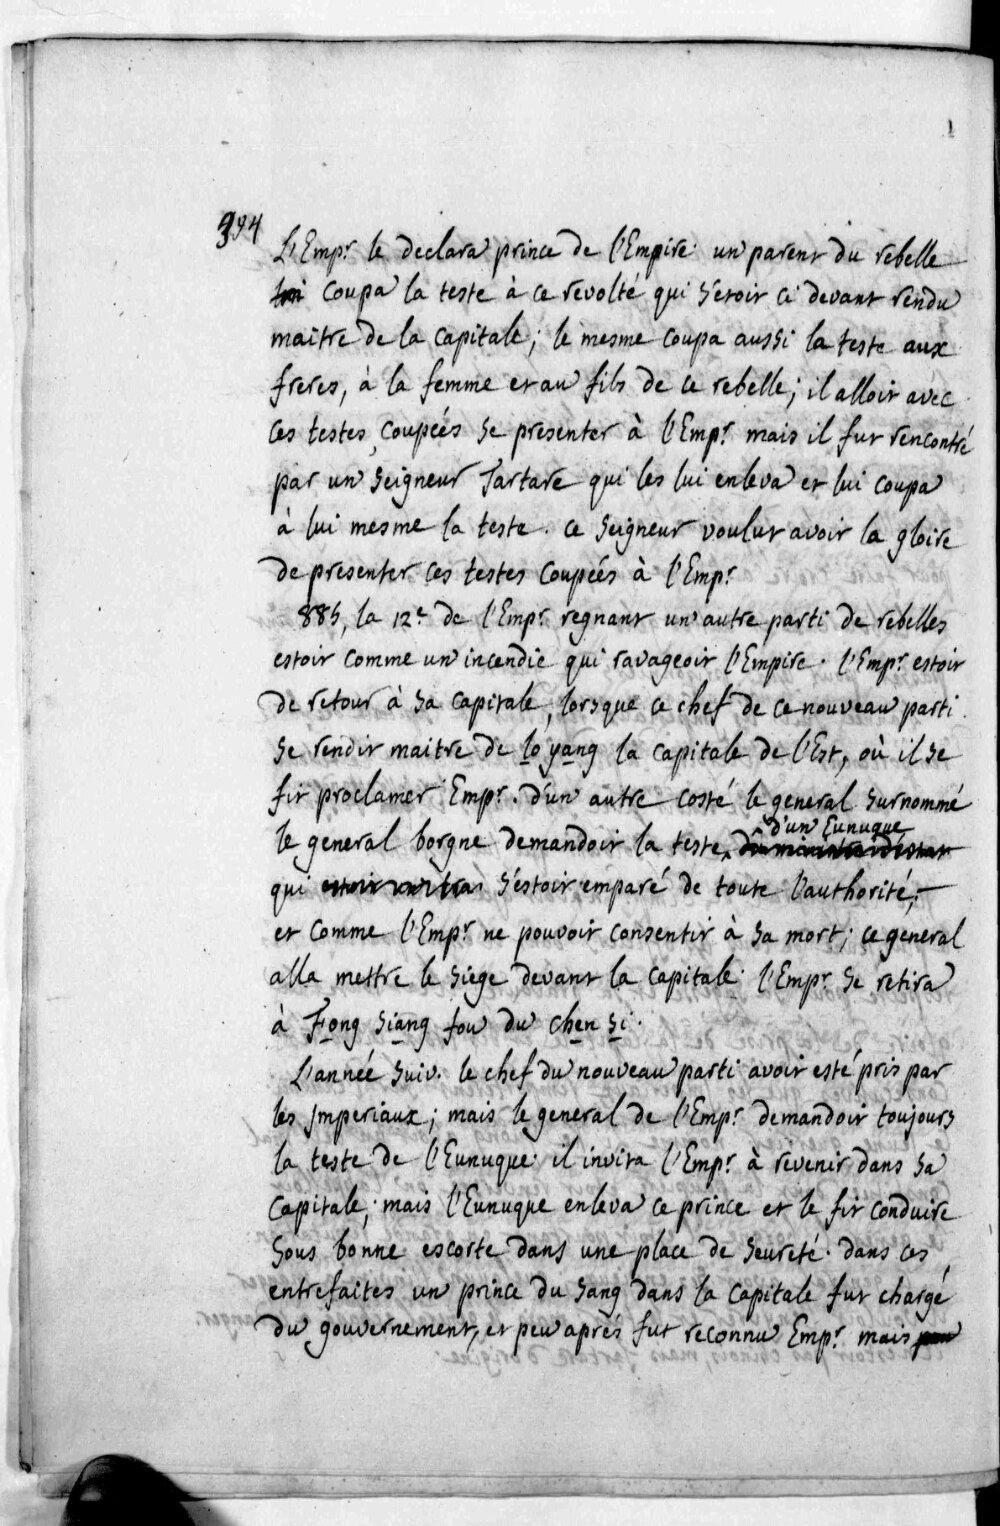 394
L'Emp.r le declara prince de l'Empire. un parent du rebelle
lui coupa la teste à ce revolté qui s'etoit ci devant rendu
maitre de la capitale; le mesme coupa aussi la teste aux
freres, à la femme et au fils de ce rebelle; il alloit avec
ces testes coupées se presenter à l'Emp.r mais il fut rencontré
par un seigneur Tartare qui les lui enleva et lui coupa
à lui mesme la teste. ce seigneur voulut avoir la gloire
de presenter ces testes coupées à l'Emp.r
885, la 12.e de l'Emp.r regnant un autre parti de rebelles
estoit comme un incendie qui ravageoit l'Empire. l'Emp.r estoit
de retour à sa capitale, lorsque ce chef de ce nouveau parti
se rendit maitre de lo yang la capitale de l'Est, où il se
fit proclamer Emp.r. d'un autre costé le general surnommé
d'un Eunuque
le general borgne demandoit la teste du ministre d'éstat
qui estoit s'éstoit emparé de toute l'authorité;
et comme l'Emp.r ne pouvoit consentir à sa mort; ce general
alla mettre le siége devant la capitale. l'Emp.r se retira
à Fong siang fou du chen si.
L'année suiv. le chef du nouveau parti avoit esté pris par
les Imperiaux; mais le general de l'Emp.r demandoit toujours
la teste de l'Eunuque. il invita l'Emp.r à revenir dans sa
capitale; mais l'Eunuque enleva ce prince et le fit conduire
sous bonne escorte dans une place de seureté. dans ces
entrefaites un prince du sang dans la capitale fut chargé
du gouvernement, et peu aprés fut reconnu Emp.r mais peu